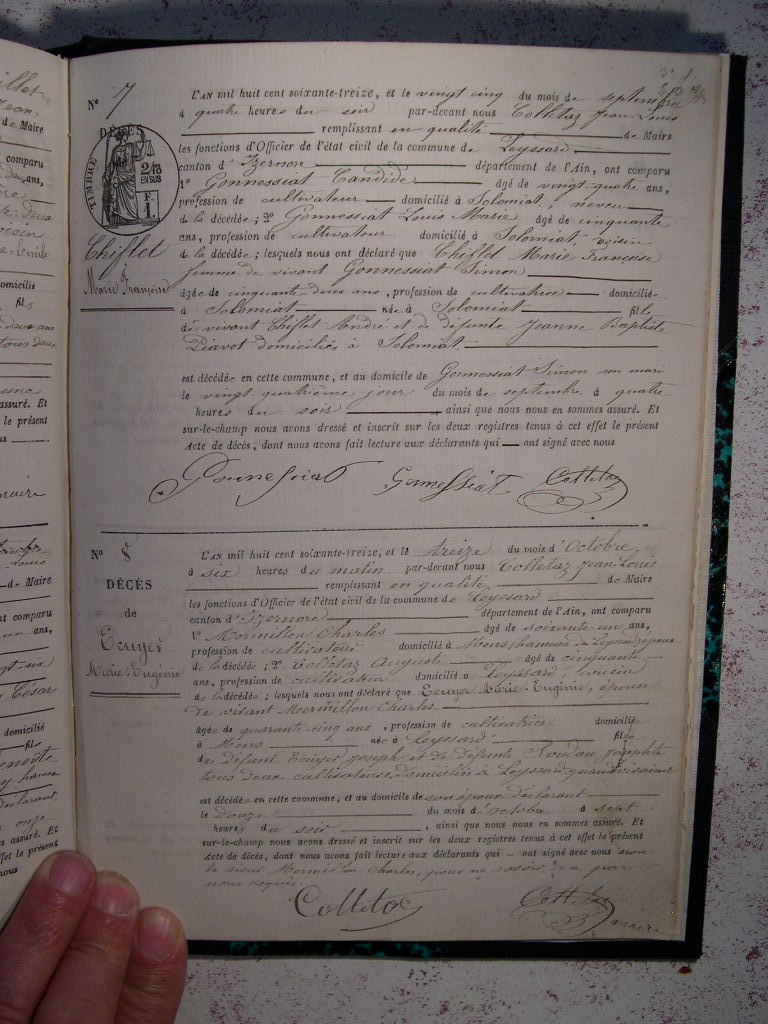 N° 7
TIMBRE
DÉCÈS
2/10
EN SUS
F.
1.
Chiflet
Marie Françoise
L'AN mil huit cent soixante-treize, et le vingt cinq du mois de septembre
à quatre heures du soir par-devant nous Colletaz Jean-Louis
remplissant en qualité de Maire
les fonctions d'Officier de l'état civil de la commune de Leyssard
canton d'Izernore département de l'Ain, ont comparu
1° Gonnessiat Candide âgé de vingt-quatre ans,
profession de cultivateur domicilié à Solomiat, neveu
de la décédée ; 2° Gonnessiat Louis Marie âgé de cinquante
ans, profession de cultivateur domicilié à Solomiat, voisin
de la décédée ; lesquels nous ont déclaré que Chiflet Marie Françoise
femme de vivant Gonnessiat Simon
âgée de cinquante-deux ans, profession de cultivatrice domiciliée
à Solomiat née à Solomiat fille
de vivant Chiflet André et de défunte Jeanne Baptiste
Piavot domiciliés à Solomiat.
est décédée en cette commune, et au domicile de Gonnessiat Simon son mari
le vingt quatrième jour du mois de septembre à quatre
heures du soir ainsi que nous nous en sommes assuré. Et
sur-le-champ nous avons dressé et inscrit sur les deux registres tenus à cet effet le présent
Acte de décès, dont nous avons fait lecture aux déclarants qui ont signé avec nous
Gonnessiat Gonnessiat Colletaz
N° 8
DÉCÈS
de
Ecuyer
Marie-Eugénie
L'AN mil huit cent soixante-treize, et le treize du mois d'Octobre
à six heures du matin par-devant nous Colletaz Jean-Louis
remplissant en qualité de Maire
les fonctions d'Officier de l'état civil de la commune de Leyssard
canton d'Izernore département de l'Ain, ont comparu
1° Mermillon Charles âgé de soixante un ans,
profession de cultivateur domicilié à Mons hameau de Leyssard, époux
de la décédée ; 2° Colletaz Auguste âgé de cinquante
ans, profession de cultivateur domicilié à Leyssard, cousin
de la décédée ; lesquels nous ont déclaré que Ecuyer Marie-Eugénie, épouse
de vivant Mermillon Charles.
âgée de quarante cinq ans, profession de cultivatrice domiciliée
à Mons née à Leyssard fille
de défunt Ecuyer Joseph et de défunte Josephte
tous deux cultivateurs, domiciliés à Leyssard quand vivaient
est décédée en cette commune, et au domicile de son époux déclarant
le Douze du mois d'octobre à sept
heures du soir, ainsi que nous nous en sommes assuré. Et
sur-le-champ nous avons dressé et inscrit sur les deux registres tenus à cet effet le présent
Acte de décès, dont nous avons fait lecture aux déclarants qui ont signé avec nous non
le sieur Mermillon Charles, pour ne savoir de ce par
nous requis.
Colletaz Colletaz
maire